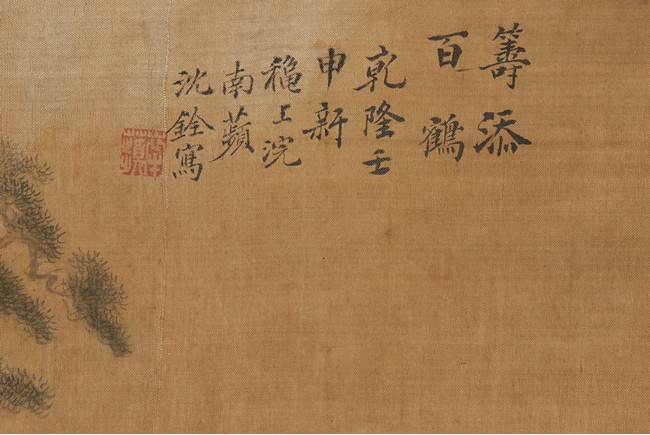 籌添
百鶴
乾隆壬
申新
穐上浣
南蘋
沈銓寫